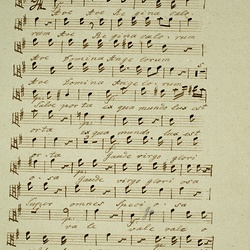 Ave Ave Regina caelo
rum Ave Regina caelo: rum
Ave Domina Angelorum
Ave Domina Angelo: rum
Salve porta ex qua mundo lux est
orta ex qua mundo lux est
or: ta Gaude virgo glori
o: sa Gaude virgo glorio sa
super omnes Speci o: sa
va le Vale vale o